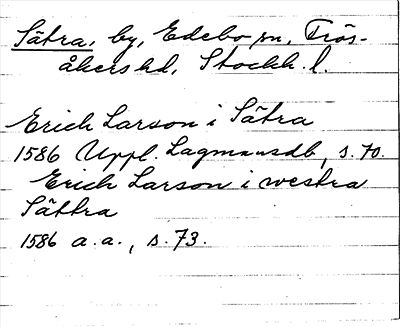 Sätra, by, Edebo sn, Frös-
åkers hd, Stockh. l.
Erich Larson i Sätra
1586 Uppl. Lagmansdb, s. 70.
Erich Larson i westra
Sättra
1586 a.a., s. 73.